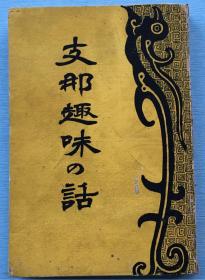 支那趣味の話